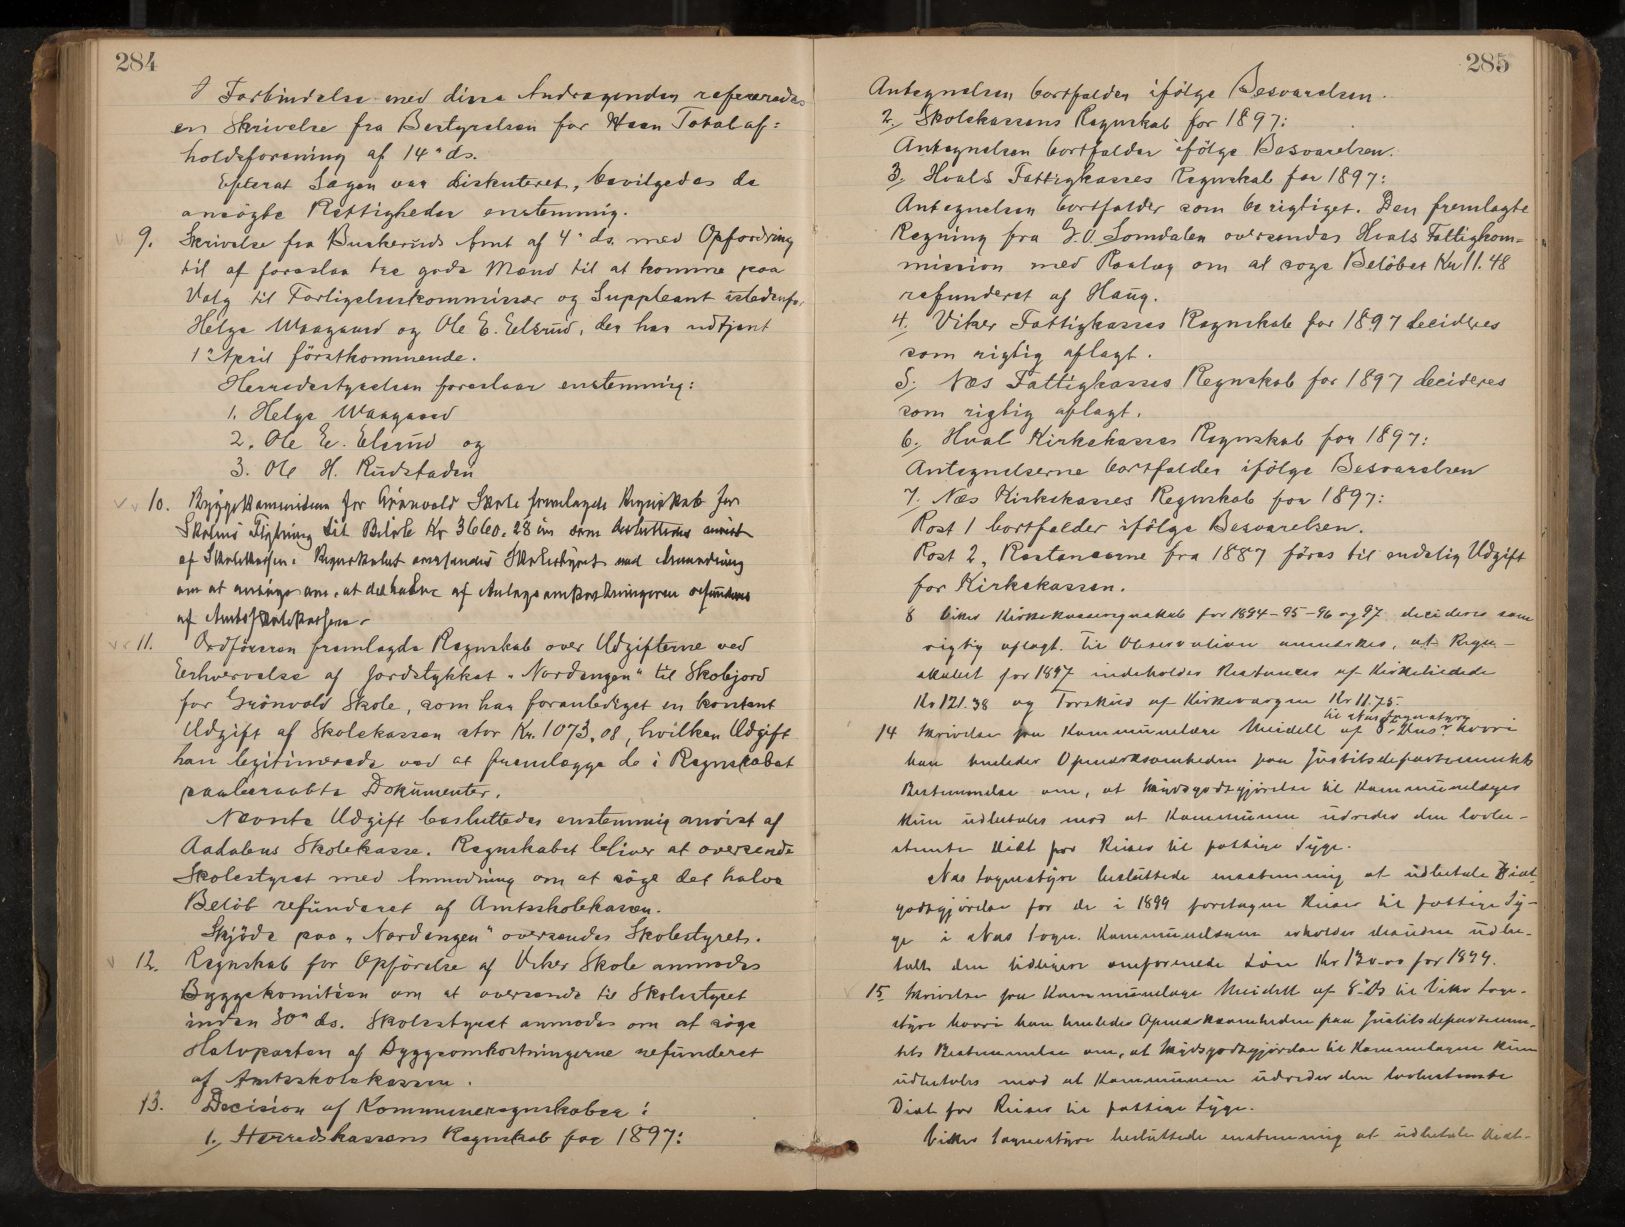 284
I Forbindelse med disse Andragender refereredes
en Skrivelse fra Bestyrelsen for Haen Totalaf:
holdsforening af 14de ds.
Efterat Sagen var diskuteret, bevilgedes de
ansögte Rettigheder enstemmig.
9. Skrivelse fra Buskeruds Amt af 4de ds. med Opfordring
til at foreslaa tre gode Mænd til at komme paa
Valg til Forligelseskommissær og Suppleant istedenfor
Helge Waagaard og Ole E. Elsrud, der har udtjent
1ste April förstkommende.
Herredsstyrelsen foreslaar enstemmig:
1. Helge Waagaard
2. Ole E. Elsrud og
3. Ole H. Rudstaden
10. Byggekommiteen for Grönvold Skole fremlagde Regnskab for
Skolens Flytning dit Belöb Kr 3660.28 der som besluttedes anvist
af Skolekassen. Regnskabet oversendes Skolestyret med Anmodning
om at ansöge om, at det halve af Anlægsomkostningerne refunderes
af Amtsskolekassen.
11. Ordföreren fremlagde Regnskab over Udgifterne ved
Erhvervelse af Jordstykket "Nordengen" til Skolejord
for Grönvold Skole, som har foranlediget en kontant
Udgift af Skolekassen stor Kr. 1073,08, hvilken Udgift
han legitimerede ved at fremlægge de i Regnskabet
paaberaabte Dokumenter.
Nævnte Udgift besluttedes enstemmig anvist af
Aadalens Skolekasse. Regnskabet bliver at oversende
Skolestyret med Anmodning om at söge det halve
Belöb refunderet af Amtsskolekassen.
Skjöde paa "Nordengen" oversendes Skolestyret.
12. Regnskab for Opförelse af Viker Skole anmodes
Byggekomitéen om at oversende til Skolestyret
inden 30te ds. Skolestyret anmodes om at söge
Halvparten af Byggeomkostningerne refunderet
af Amtsskolekassen.
13. Decision af Kommuneregnskaber:
1. Herredskassens Regnskab for 1897:
285
Antegnelsen bortfalder ifölge Besvarelsen.
2. Skolekassens Regnskab for 1897:
Antegnelsen bortfalder ifölge Besvarelsen.
3. Hvals Fattigkasses Regnskab for 1897:
Antegnelsen bortfalder som berigtiget. Den fremlagte
Regning fra J. O. Somdalen oversendes Hvals Fattigkom=
mission med Paalæg om at söge Belöbet Kr 11.48
refunderet af Haug.
4. Viker Fattigkasses Regnskab for 1897 decideres
som rigtig aflagt.
5. Næs Fattigkasses Regnskab for 1897 decideres
som rigtig aflagt.
6. Hval Kirkekasses Regnskab for 1897:
Antegnelserne bortfalder ifölge Besvarelsen
7. Næs Kirkekasses Regnskab for 1897:
Post 1 bortfalder ifölge Besvarelsen.
Post 2, Restancerne fra 1887 föres til endelig Udgift
for Kirkekassen.
8 Viker Kirkekasseregnskab for 1894-95-96 og 97 decideres som
rigtig aflagt. Til Observation anmærkes, at Regn-
skabet for 1897 indeholder Restancer af Kirkeliedede
Kr 121.38 og Forskud af Kirkevargen Kr 11.75.
til Næs Sognestyre
14 Skrivelse fra Kommunelæge Meidell af 8de ds hvori
han henleder Opmærksomheden paa Justitsdepartementets
Bestemmelse om, at Skydsgodtgjörelse til Kommunelæger
kun udbetales mod at Kommunen udreder den lovbe-
stemte Diæt for Reiser til fattige Syge.
Næs Sognestyre besluttede enstemmig at udbetale Diæt-
godtgjörelse for de i 1899 foretagne Reiser til fattige Sy-
ge i Næs Sogn. Kommunelægen erholder desuden udbe-
talt den tidligere omforenede Lön Kr 130.00 for 1899.
15 Skrivelse fra Kommunelæge Meidell af 8de ds til Viker Sogne-
styre hvori han henleder Opmærksomheden paa Justitsdepartemen-
tets Bestemmelse om, at Skydsgodtgjörelse til Kommunelægen kun
udbetales mod at Kommunen udreder den lovbestemte
Diæt for Reiser til fattige Syge.
Viker Sognestyre besluttede enstemmig at udbetale Diæt-